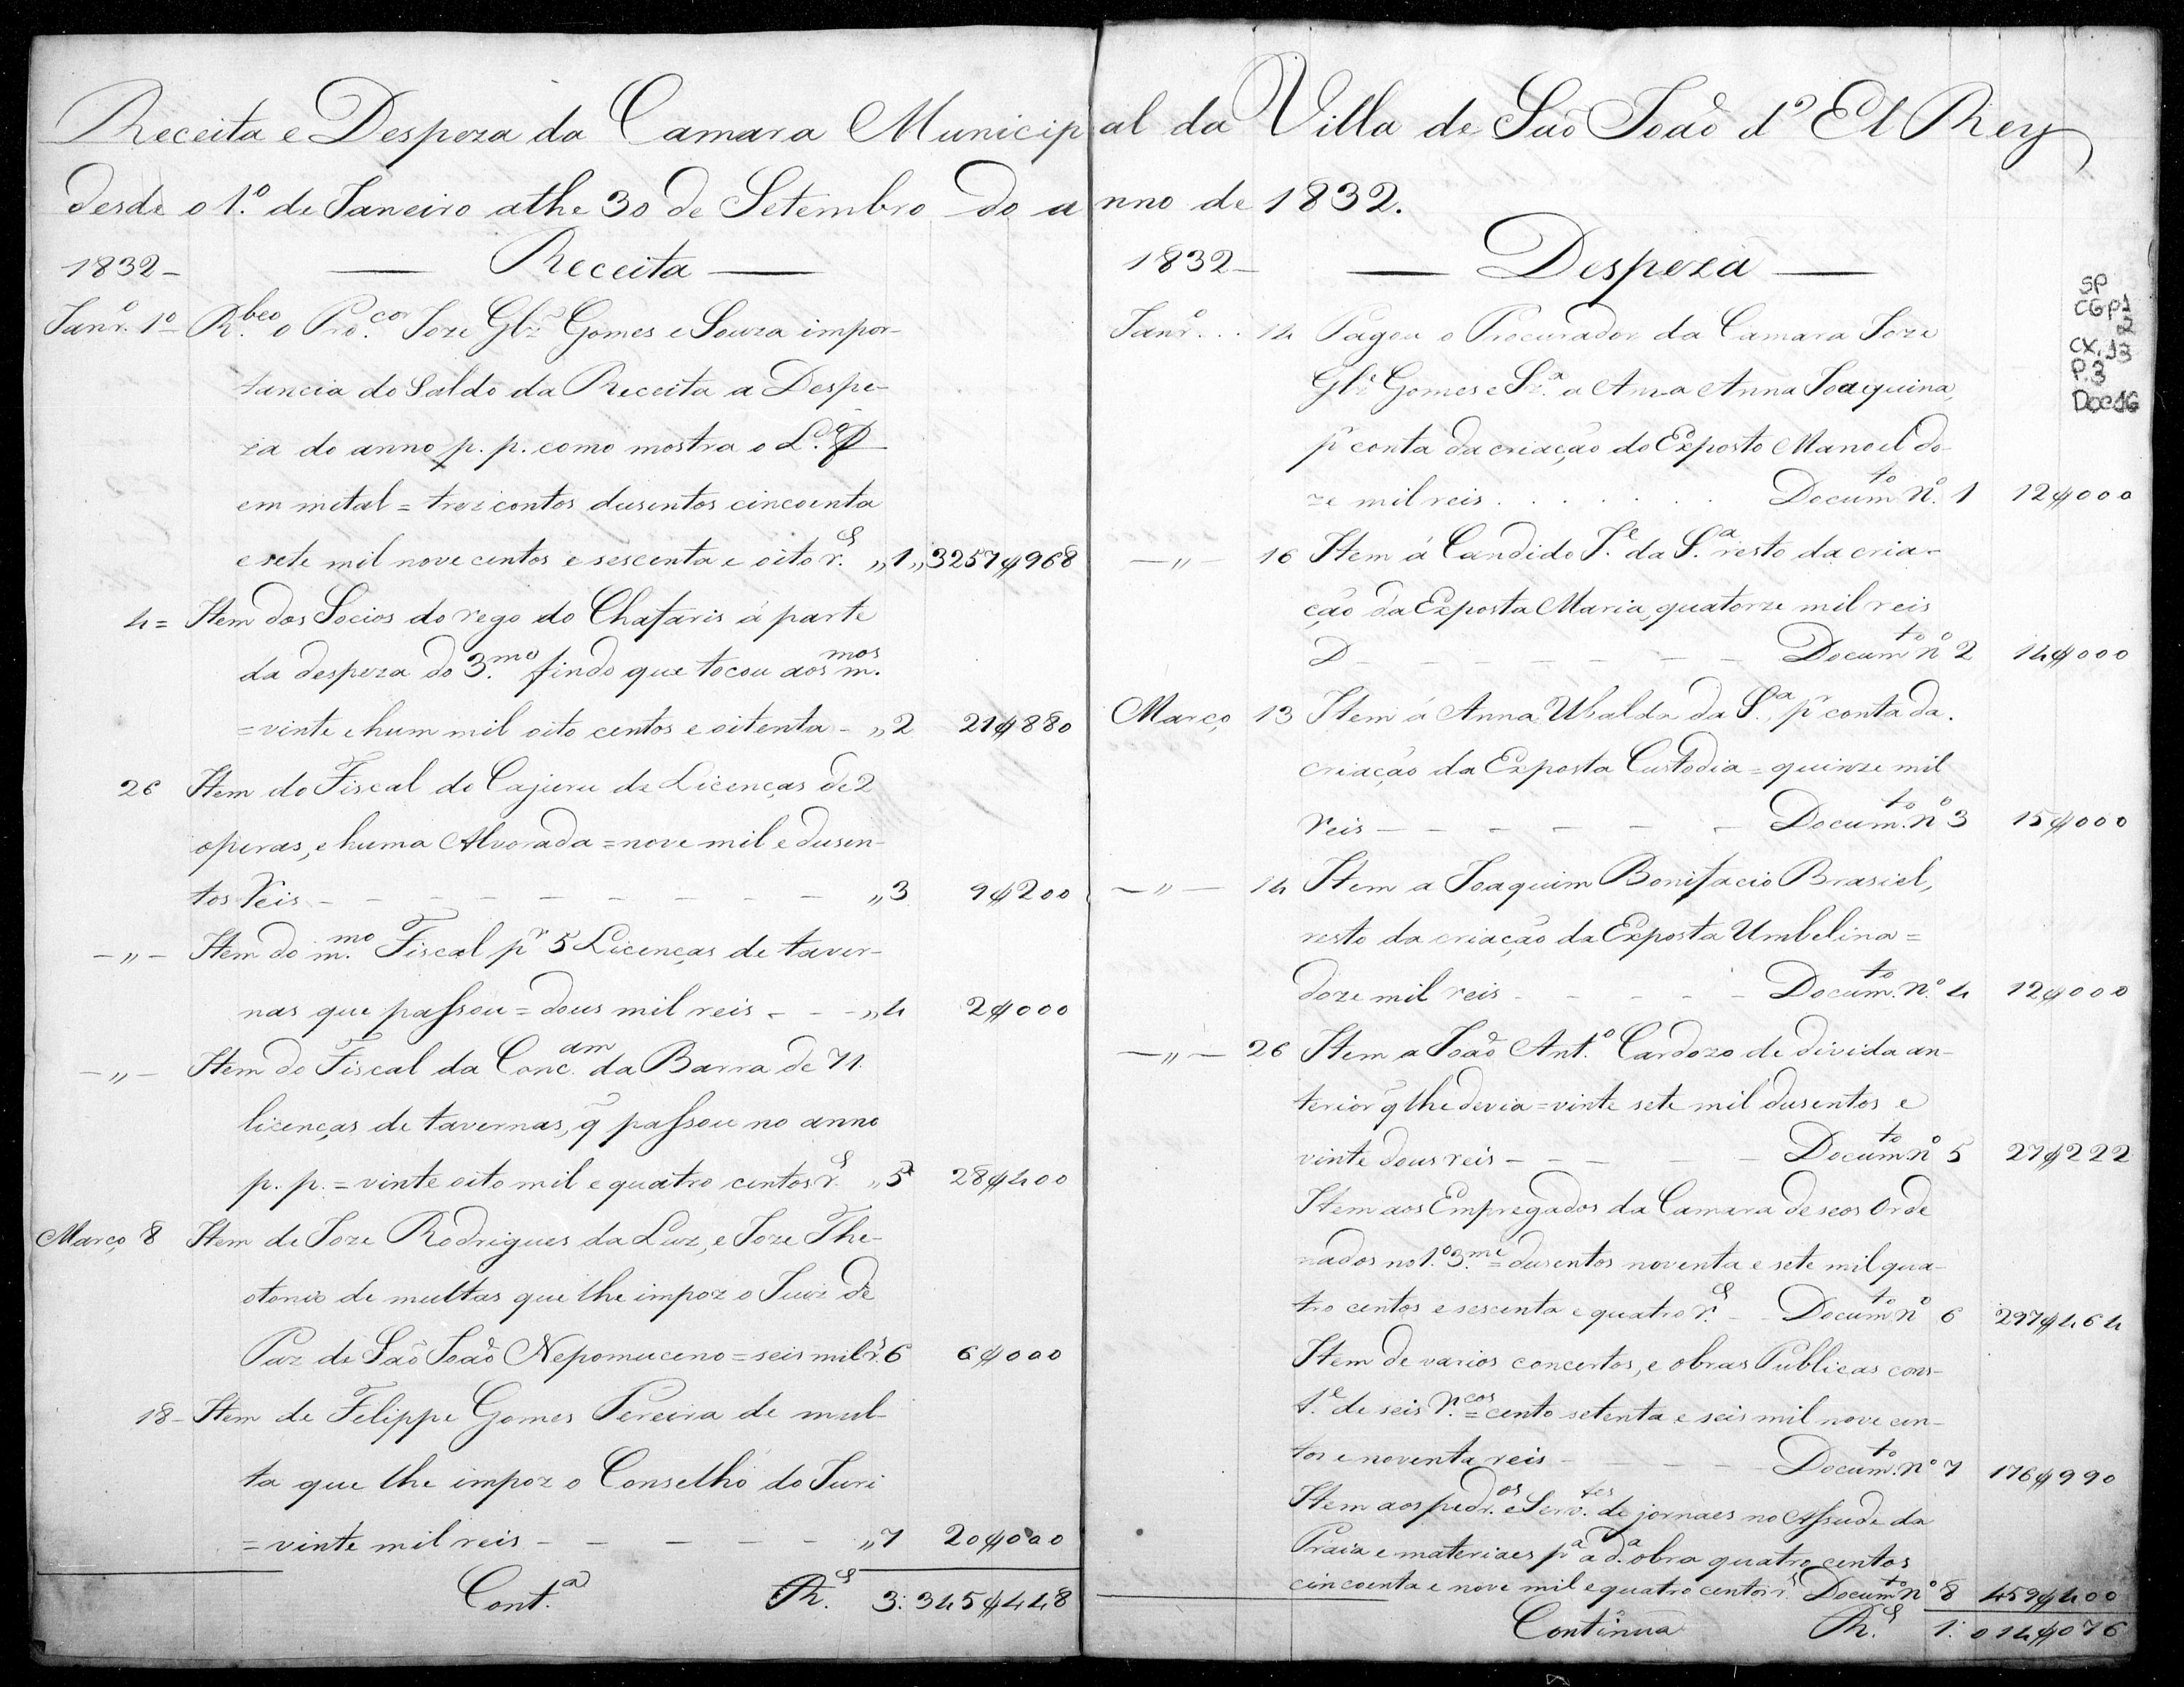 Receita e Despeza da Camara Municipal da Villa de São João d' El Rey
desde o 1.º de Janeiro athe 30 de Setembro do anno de 1832.
1832 - Receita
Janr.º 1º R.beo o Pro.cor Joze Glz Gomes e Souza impor-
tancia do Saldo da Receita a Despe-
za do anno p. p. como mostra o L.º
em metal = trez contos dusentos cincoenta
e sete mil nove centos e sescenta e oito r.s „1„ 3257$968
4 = Item dos Socios do rego do Chafaris á parte
da despeza do 3.mo findo que tocou aos m.mos
= vinte e hum mil oito centos e oitenta - „2 21$880
26 Item do Fiscal do Cajuru de Licenças de 2
operas, e huma Alvorada = nove mil e dusen-
tos reis - - - - - - - - „3 9$200
-„- Item do m.mo Fiscal pr 5 Licenças de taver-
nas que passou = dous mil reis - - - „4 2$000
-„- Item do Fiscal da Conc.am da Barra de 71
licenças de tavernas, q̃ passou no anno
p. p. = vinte oito mil e quatro centos r.s „5 28$400
Março 8 Item de Joze Rodrigues da Luz, e Joze The-
otonio de multas que lhe impoz o Juiz de
Paz de São João Nepomuceno = seis mil r.s 6 6$000
18 - Item de Felippe Gomes Pereira de mul-
ta que lhe impoz o Conselho do Juri
= vinte mil reis - - - - - - „7 20$000
Cont.a R.s 3:345$448
1832 - Despeza
Janr.º .. 14 Pagou o Procurador da Camara Joze
Glz Gomes e Sz.a a Ama Anna Joaquina,
pr conta da criação do Exposto Manoel do-
ze mil reis . . . . . . Docum.to N.º 1 12$000
-„- 16 Item á Candido J.e da S.a resto da cria-
ção da Exposta Maria, quatorze mil reis
- - - - - - - Docum.to nº 2 14$000
Março 13 Item á Anna Ubalda da S.a, pr conta da
criação da Exposta Custodia = quinze mil
reis - - - - - - Docum.to nº 3 15$000
-„- 14 Item a Joaquim Bonifacio Brasiel,
resto da criação da Exposta Umbelina =
doze mil reis - - - - - Docum.to n.º 4 12$000
-„- 26 Item a João Ant.º Cardozo de divida an-
terior q̃ lhe devia = vinte sete mil dusentos e
vinte dous reis - - - - - Docum.to nº 5 27$222
Item aos Empregados da Camara de seos Orde
nados no 1.º 3.me = dusentos noventa e sete mil qua-
tro centos e sescenta e quatro r.s - - Docum.to nº 6 297$464
Item de varios concertos, e obras Publicas cons-
t.e de seis R.cos = cento setenta e seis mil nove cen-
tos e noventa reis - - - - - Docum.to nº 7 176$990
Item aos pedr.os e Serv.tes de jornaes no Assude da
Praia e materiaes p.a a d.a obra quatro centos
cincoenta e nove mil e quatro centos r.s Docum.to nº 8 459$400
Continua R.s 1:014$076
SP
CGP1
2
CX.13
P.3
Doc16